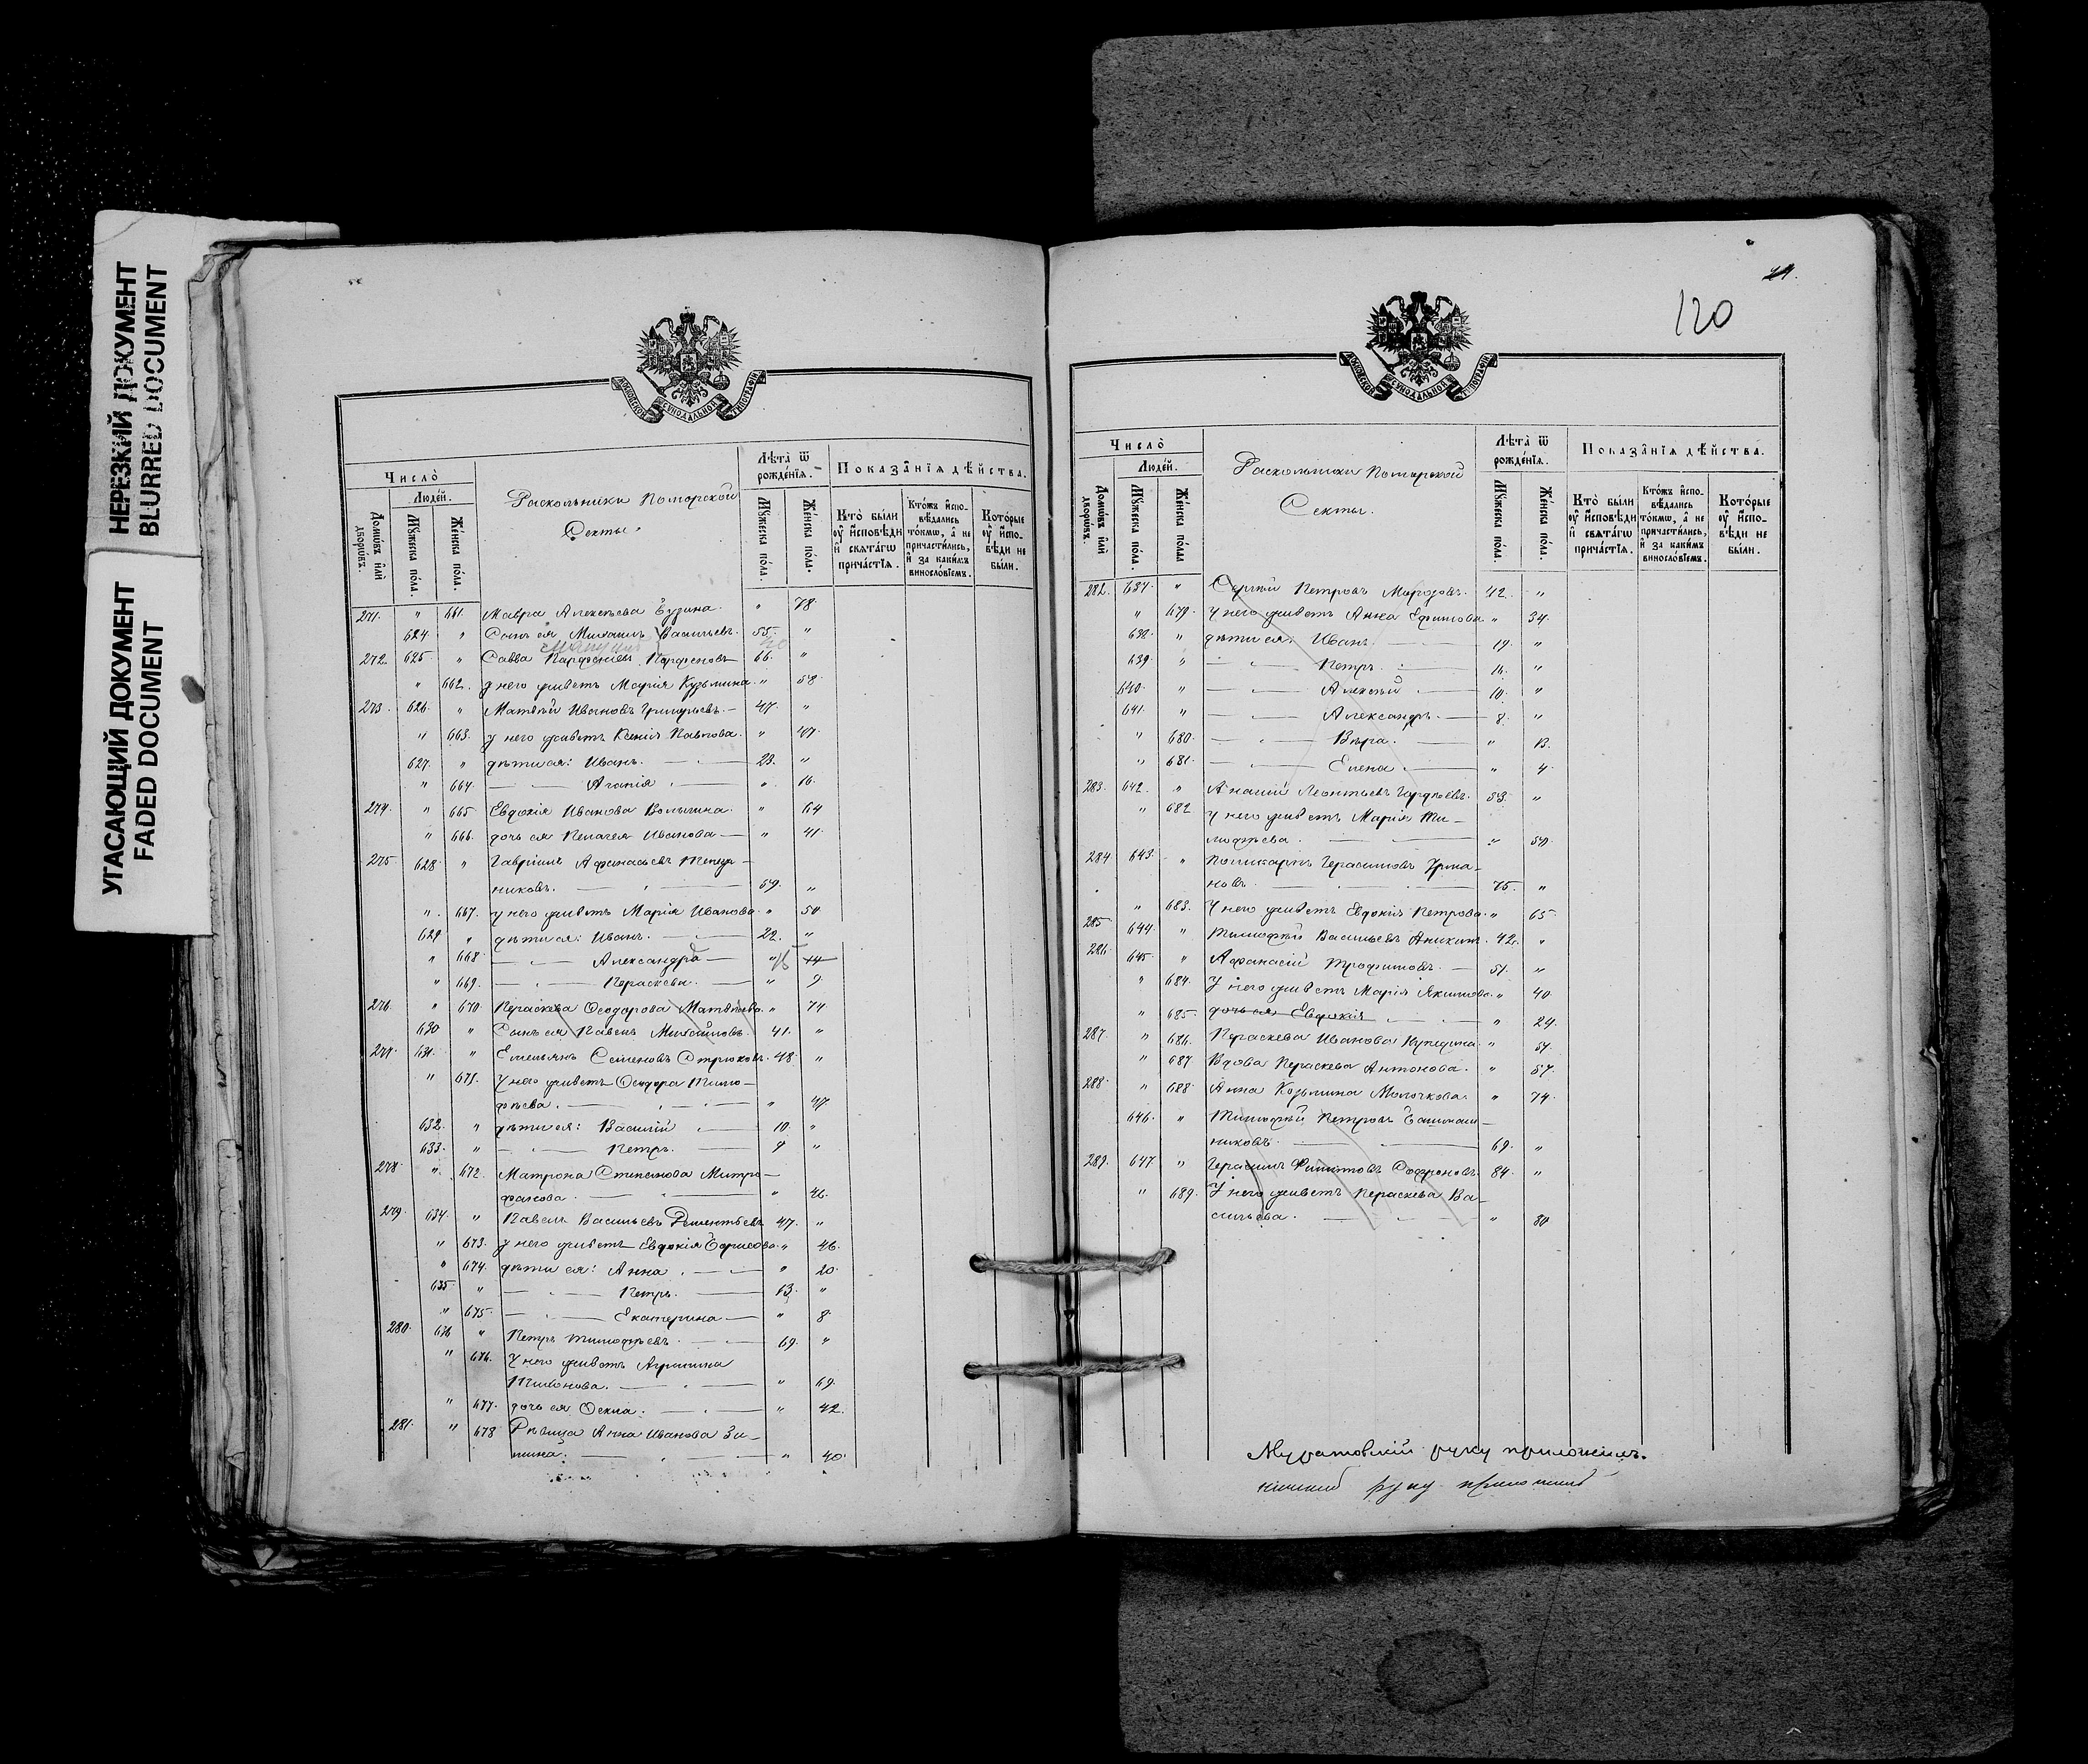 НЕРЕЗКИЙ ДОКУМЕНТ
BLURRED DOCUMENT
УГАСАЮЩИЙ ДОКУМЕНТ
FADED DOCUMENT
МОСКОВСКОЙ СѴНОДАЛЬНОЙ ТИПОГРАФІИ
Число̀
Люде́й.
Домѡ́въ и҆лѝ дворѡ́въ.
Мꙋ́жеска по́ла.
Же́нска по́ла.
Раскольники Поморской
Секты.
Лѣта̀ ѿ рожде́нїѧ.
Мꙋ́жеска по́ла.
Же́нска по́ла.
Показа̂нїѧ дѣ́йства.
Кто̀ бы́ли оу҆ и҆́сповѣди и҆ свѧта́гѡ причáстїѧ.
Кто́жъ и҆спо-вѣ́дались то́кмѡ, а҆ не причасти́лись, и҆ за каки́мъ виносло́вїемъ.
Кото́рые оу҆ и҆́спо-вѣди не бы́ли.
271. " 661. Мавра Алексѣева Бузина. " 78.
624. " Сынъ ея Михаилъ Васильевъ. 55. "
272. 625. " Савва Парфеновъ 66. "
" 662. У него живетъ Марія Кузьмина. " 58.
273. 626. " Матвѣй Ивановъ Григорьевъ. 47. "
" 663. У него живетъ Ксенія Павлова. " 47.
627. " дѣти ея: Иванъ. 23. "
" 664. Агапія " 16.
274. " 665. Евдокія Иванова " 64
" 666. дочь ея Пелагея Иванова " 41.
275. 628. " Гавріилъ Афанасьевъ
никовъ. 59. "
" 667. у него живетъ Марія Иванова. " 50
629 " дѣти ея: Иванъ. 22. "
" 668. Александра " 15 14
" 669. Параскева. " 9
276. " 670. Параскева Ѳеодорова Матвѣева. " 74.
630 " Сынъ ея Павелъ Михайловъ. 41. "
277. 631. " Емельянъ Семеновъ Стрюковъ. 48. "
" 671. У него живетъ Ѳеодора Тимо-
фѣева. " 47
632. " дѣти ея: Василій 10. "
633. " Петръ. 9 "
278. " 672. Матрона Степанова Митро-
фанова. " 46.
279. 634. " Павелъ Васильевъ Дементьевъ 47. "
" 673. У него живетъ Евдокія Борисова. " 46.
" 674. дѣти ея: Анна. " 20.
635. " Петръ. 13. "
" 675. Екатерина " 8.
280. 636 " Петръ Тимофѣевъ. 69. "
" 676. У него живетъ
" 69.
" 677. дочь ея " 42.
281. " 678 Дѣвица Анна Иванова Зи-
нина. " 40.
24.
120
МОСКОВСКОЙ СѴНОДАЛЬНОЙ ТИПОГРАФІИ
Число̀
Люде́й.
Домѡ́въ и҆лѝ дворѡ́въ.
Мꙋ́жеска по́ла.
Же́нска по́ла
Раскольники Поморской
Секты.
Лѣта̀ ѿ рожде́нїѧ.
Мꙋ́жеска по́ла.
Же́нска по́ла.
Показа̂нїѧ дѣ́йства.
Кто̀ бы́ли оу҆ и҆́сповѣди и҆ свѧта́гѡ причáстїѧ.
Кто́жъ и҆спо-вѣ́дались то́кмѡ, а҆ не причасти́лись, и҆ за каки́мъ виносло́вїемъ.
Кото́рые оу҆ и҆́спо-вѣди не бы́ли.
282. 637. " Сергѣй Петровъ Морозовъ. 42. "
" 679. У него живетъ Анна Ефимова. " 34.
638. " дѣти ея: Иванъ. 19. "
639. " Петръ. 16. "
640. " Алексѣй 10. "
641. " Александръ. 8. "
" 680. Вѣра. " 13.
" 681. Елена " 4.
283. 642. " Ананій Леонтьевъ Гордѣевъ. 53. "
" 682 У него живетъ Марія Ти-
мофѣева. " 50.
284 643. " Поликарпъ Герасимовъ
новъ 75. "
" 683. У него живетъ Евдокія Петрова. " 65.
285 644. " Тимофѣй Васильевъ Аникинъ. 42. "
286. 645. " Афанасій Трофимовъ. 51. "
" 684. У него живетъ Марія Якимова. " 40.
" 685. дочь ея Евдокія " 24.
287. " 686. Параскева Иванова " 51.
" 687. Вдова Параскева Антонова. " 57.
288. " 688. Анна Козьмина Молочкова. " 74.
646. " Тимофѣй Петровъ Башмаш-
никовъ. 69. "
289. 647 " Герасимъ Филатовъ Софроновъ. 84. "
" 689. У него живетъ Параскева Ва-
сильева. " 80
Муратовскій руку приложилъ.
руку приложилъ